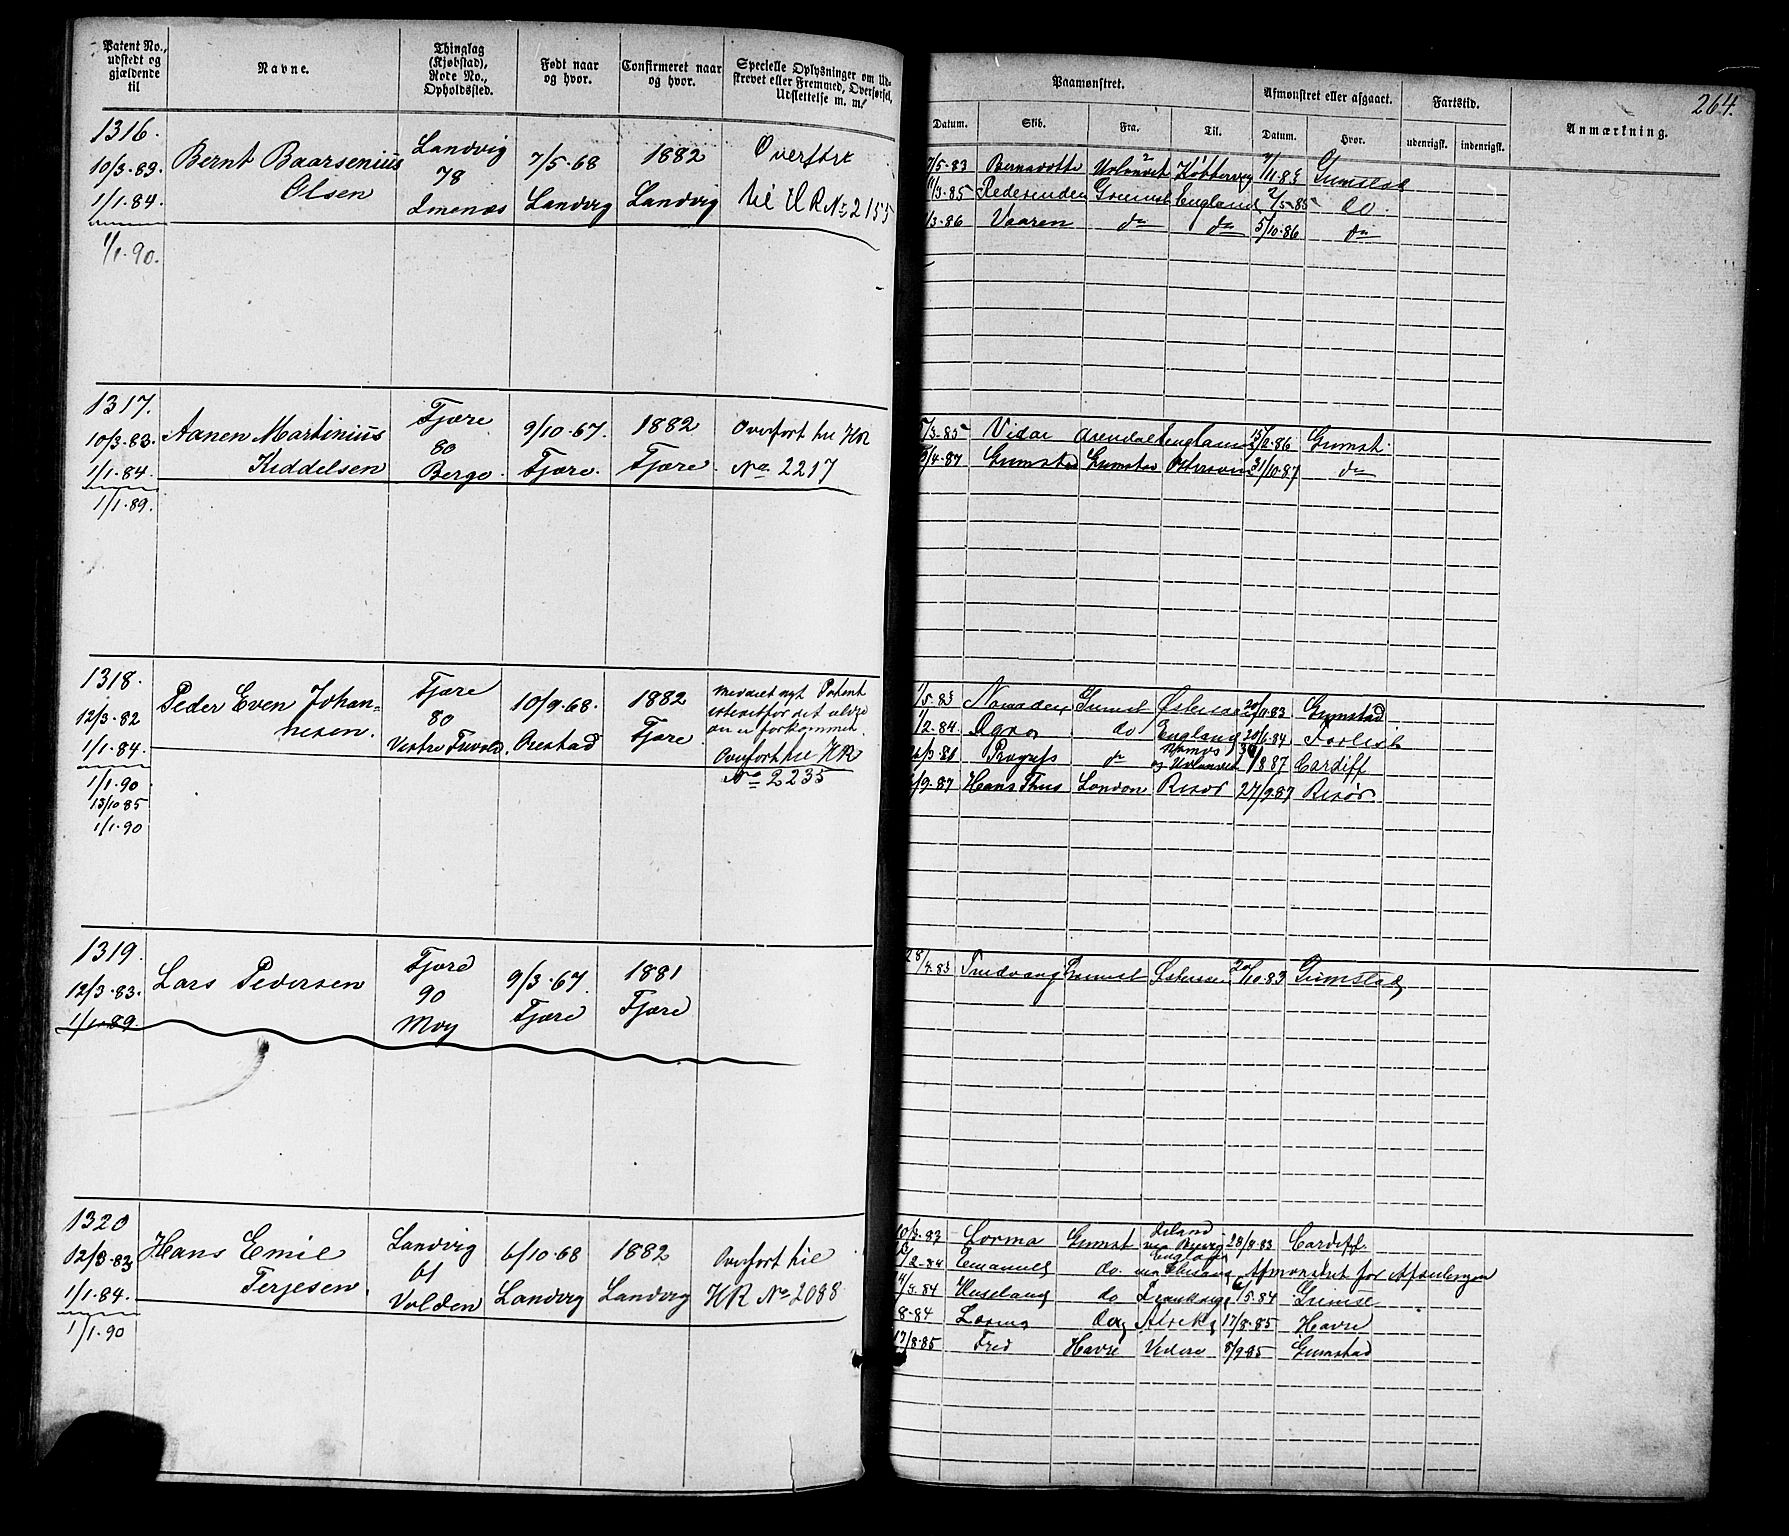 Patent No., udstedt og gjældende til
Navne.
Thinglag (Kjøbstad), Rode No., Opholdssted.
Født naar og hvor.
Confirmeret naar og hvor.
Specielle Oplysninger om Udskrevet eller Fremmed, Overførsel, Udslettelse m. m.
Paamønstret.
Afmønstret eller afgaaet.
Fartstid.
Anmærkning.
264.
Datum.
Skib.
Fra.
Til.
Datum.
Hvor.
udenrigsk.
indenrigsk.
1316.
10/3.83.
1/1.84.
1/1.90.
Bernt Baarsenius
Olsen
Landvig
78
Imenæs
7/5.68
Landvig
1882
Landvig
Overført
til HR No 2155
7/5-83 Bernadotte Grimstad
/3-85 England 2/5-85 do.
/3-86 Vaaren do do 5/10.86 do
1317.
10/3.83.
1/1.84.
1/1.89.
Aanen Martinius
Kiddelsen
Fjære
80
Berge.
9/10.67.
Fjære.
1882
Fjære
Overført til HR
No 2217
/3-85 Vidar Arendal England 15/11.86 Grimst.
/4.87 Grimstad Grimstad Østersøen 31/10.87 do
1318.
12/3.82
1/1.84.
1/1.90
13/10 85
1/1.90
Peder Even Johan=
nesen.
Fjære
80
Vestre Trivold.
10/9.68.
Ørestad
1882
Fjære
meddelt nyt Patent
istedetfor det ældre
der er forkommet.
Overført til HR
No 2235
1/5.83 Nomaden Grimst Østersøen 20/9.83 Grimstad
1/2.84 do England 20/1.84
Progress do 30/1 87 Cardiff
/9.87 Hans Thiis London Risør 27/9.87 Risør
1319.
12/3.83.
1/1.89.
Lars Pedersen
Fjære
90
Moy
9/3.67.
Fjære
1881
Fjære
28/4.83 Trudvang Grimst Østersøen 20/10.83 Grimstad
1320
12/3.83
1/1.84.
1/1.90
Hans Emil
Terjesen.
Landvig
61
Volden
6/10.68
Landvig
1882
Landvig
Overført til
HR No 2088
10/3.83 Lorma Grimst 28/8.83 Cardiff.
/2-84 Emanuel do. Afmønstret før Afseilingen
/3.84 Huseland do /5.84 Grimst
8-84 Lorma do 17/8.85 Havre
17/8.85 Fred Havre 8/9.85 Grimstad